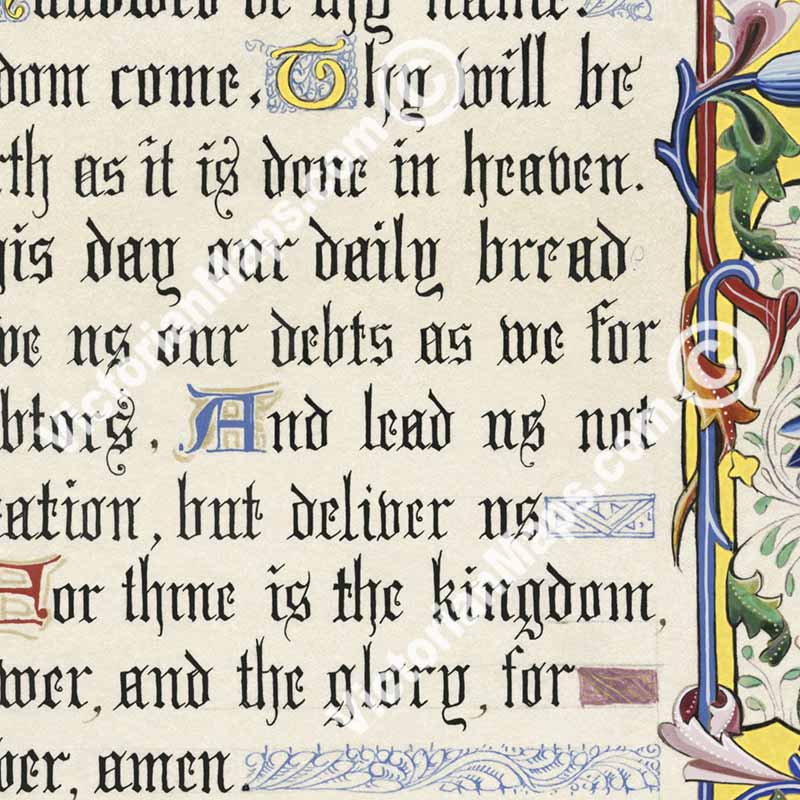 hallowed be thy name.
dom come. Thy will be
rth as it is done in heaven.
his day our daily bread
ve us our debts as we for
btors. And lead us not
tation, but deliver us
For thine is the kingdom,
wer, and the glory, for
ver, amen.
VictorianMaps.com ©
VictorianMaps.com ©